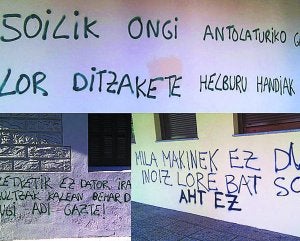 SOILIK ONGI ANTOLATURIKO
LOR DITZAKETE HELBURU HANDIAK
EZ DATOR, IRA
KALEAN BEHAR D
ADI GAZTE!
MILA MAKINEK EZ DU
INOIZ LORE BAT SO
AHT EZ